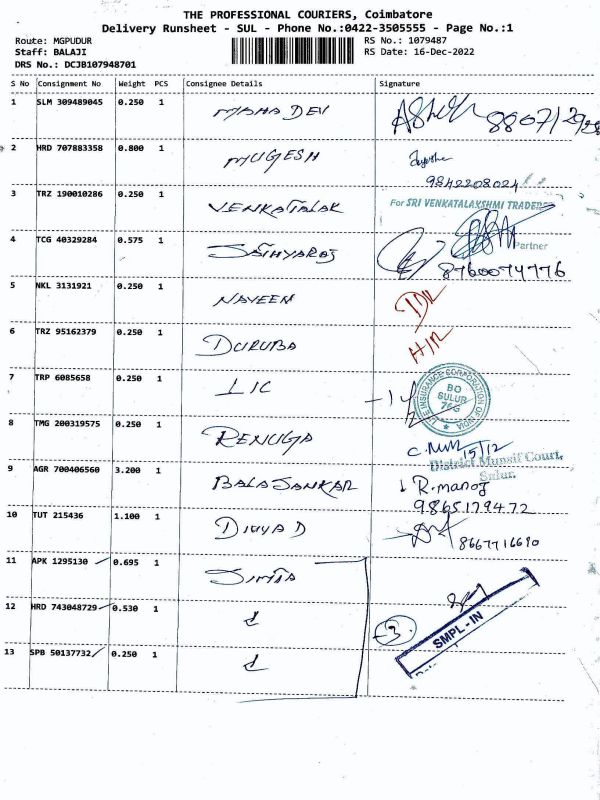 THE PROFESSIONAL COURIERS, Coimbatore
Delivery Runsheet - SUL - Phone No.:0422-3505555 - Page No.:1
Route: MGPUDUR RS No.: 1079487
Staff: BALAJI RS Date: 16-Dec-2022
DRS No.: DCJB107948701
S No Consignment No Weight PCS Consignee Details Signature
1 SLM 309489045 0.250 1 MAHA DEV
2 HRD 707883358 0.800 1 MUGESH
9842208024
3 TRZ 190010286 0.250 1 VENKATALAK For SRI VENKATALAKSHMI TRADERS
4 TCG 40329284 0.575 1 SATHYARAJ Partner
8760074776
5 NKL 3131921 0.250 1 NAVEEN
6 TRZ 95162379 0.250 1 DURUBA
7 TRP 6085658 0.250 1 LIC LIFE INSURANCE CORPORATION OF INDIA
BO
SULUR
76G
8 TMG 200319575 0.250 1 RENUGA 15/12
District Munsif Court,
Sulur.
9 AGR 700406560 3.200 1 BALASANKAR R.manoj
9865179472
10 TUT 215436 1.100 1 DIVYA D
8667716690
11 APK 1295130 0.695 1
12 HRD 743048729 0.530 1 3
SMPL - IN
13 SPB 50137732 0.250 1